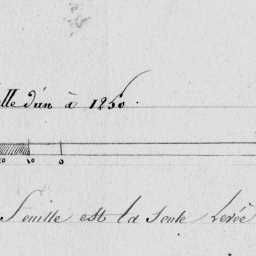 lle d'un à 1250.
20 10 0
Feuille est la seule levée